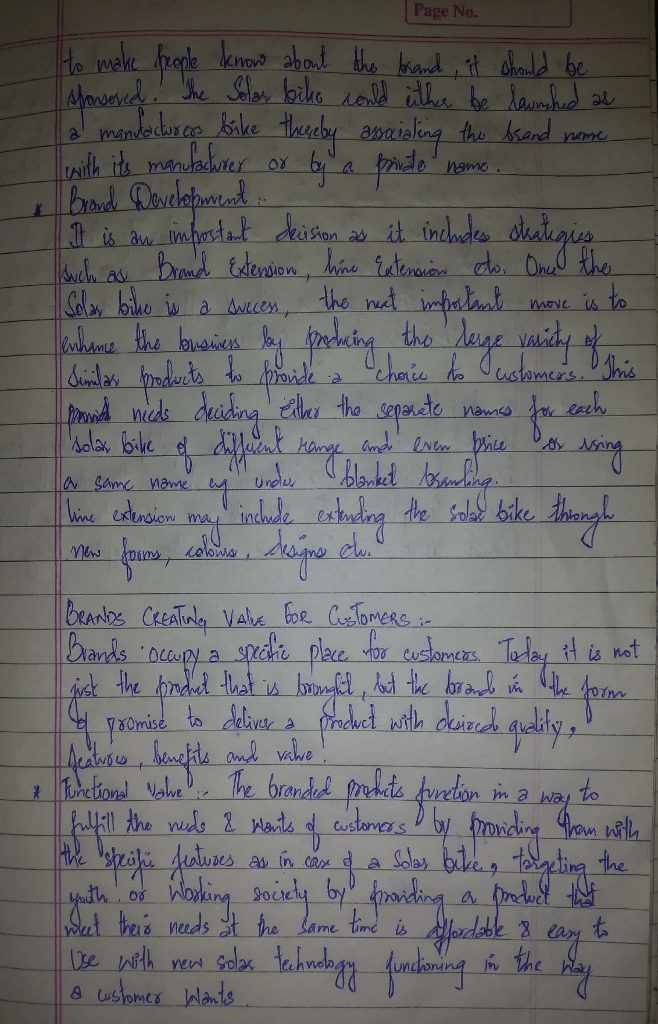 Page No.
to make people know about the brand, it should be
sponsored. The Solar bike could either be launched as
a manufacturers bike thereby associating the brand name
with its manufacturer or by a private name.
* Brand Development :-
It is an important decision as it includes strategies
such as Brand Extension, Line Extension etc. Once the
Solar bike is a success, the next important move is to
enhance the business by producing the large variety of
similar products to provide a choice to customers. This
needs deciding either the separate names for each
solar bike of different range and even price or using
a same name eg under blanket branding.
Line extension may include extending the solar bike through
new forms, colours, designs etc.
BRANDS CREATING VALUE FOR CUSTOMERS :-
Brands occupy a specific place for customers. Today it is not
just the product that is brought, but the brand in the form
of promise to deliver a product with desired quality,
features, benefits and value.
* Functional Value :- The branded products function in a way to
fulfill the needs & wants of customers by providing them with
the specific features as in case of a Solar bike, targeting the
youth or Working society by providing a product that
meet their needs at the same time is affordable & easy to
Use with new solar technology functioning in the way
a customer wants.